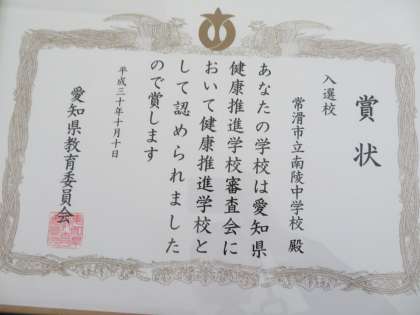 賞状
入選校
常滑市立南陵中学校 殿
あなたの学校は愛知県
健康推進学校審査会に
おいて健康推進学校と
して認められました
ので賞します
平成三十年十月十日
愛知県教育委員会